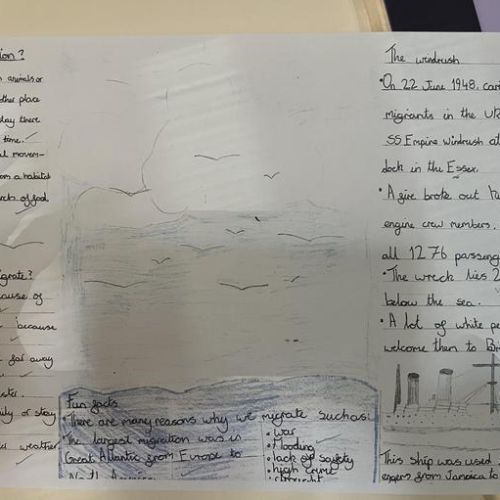 ion?
animals or
other place
day there
time.
l movem-
om a habitat
rch of food
igrate?
cause of
because
far away
ter.
ily or stay
weather
Fun facts
There are many reasons why we migrate such as:
The largest migration was in
Great Atlantic from Europe to
North America
• war
• flooding
• lack of safety
• high crime
The windrush
• On 22 June 1948, car
migrants in the UK
SS Empire windrush at
dock in the Essex.
• A fire broke out
engine crew members.
all 1276 passeng
• The wreck lies 2
below the sea.
• A lot of white pe
welcome them to Bri
This ship was used
expers from Jamaica to